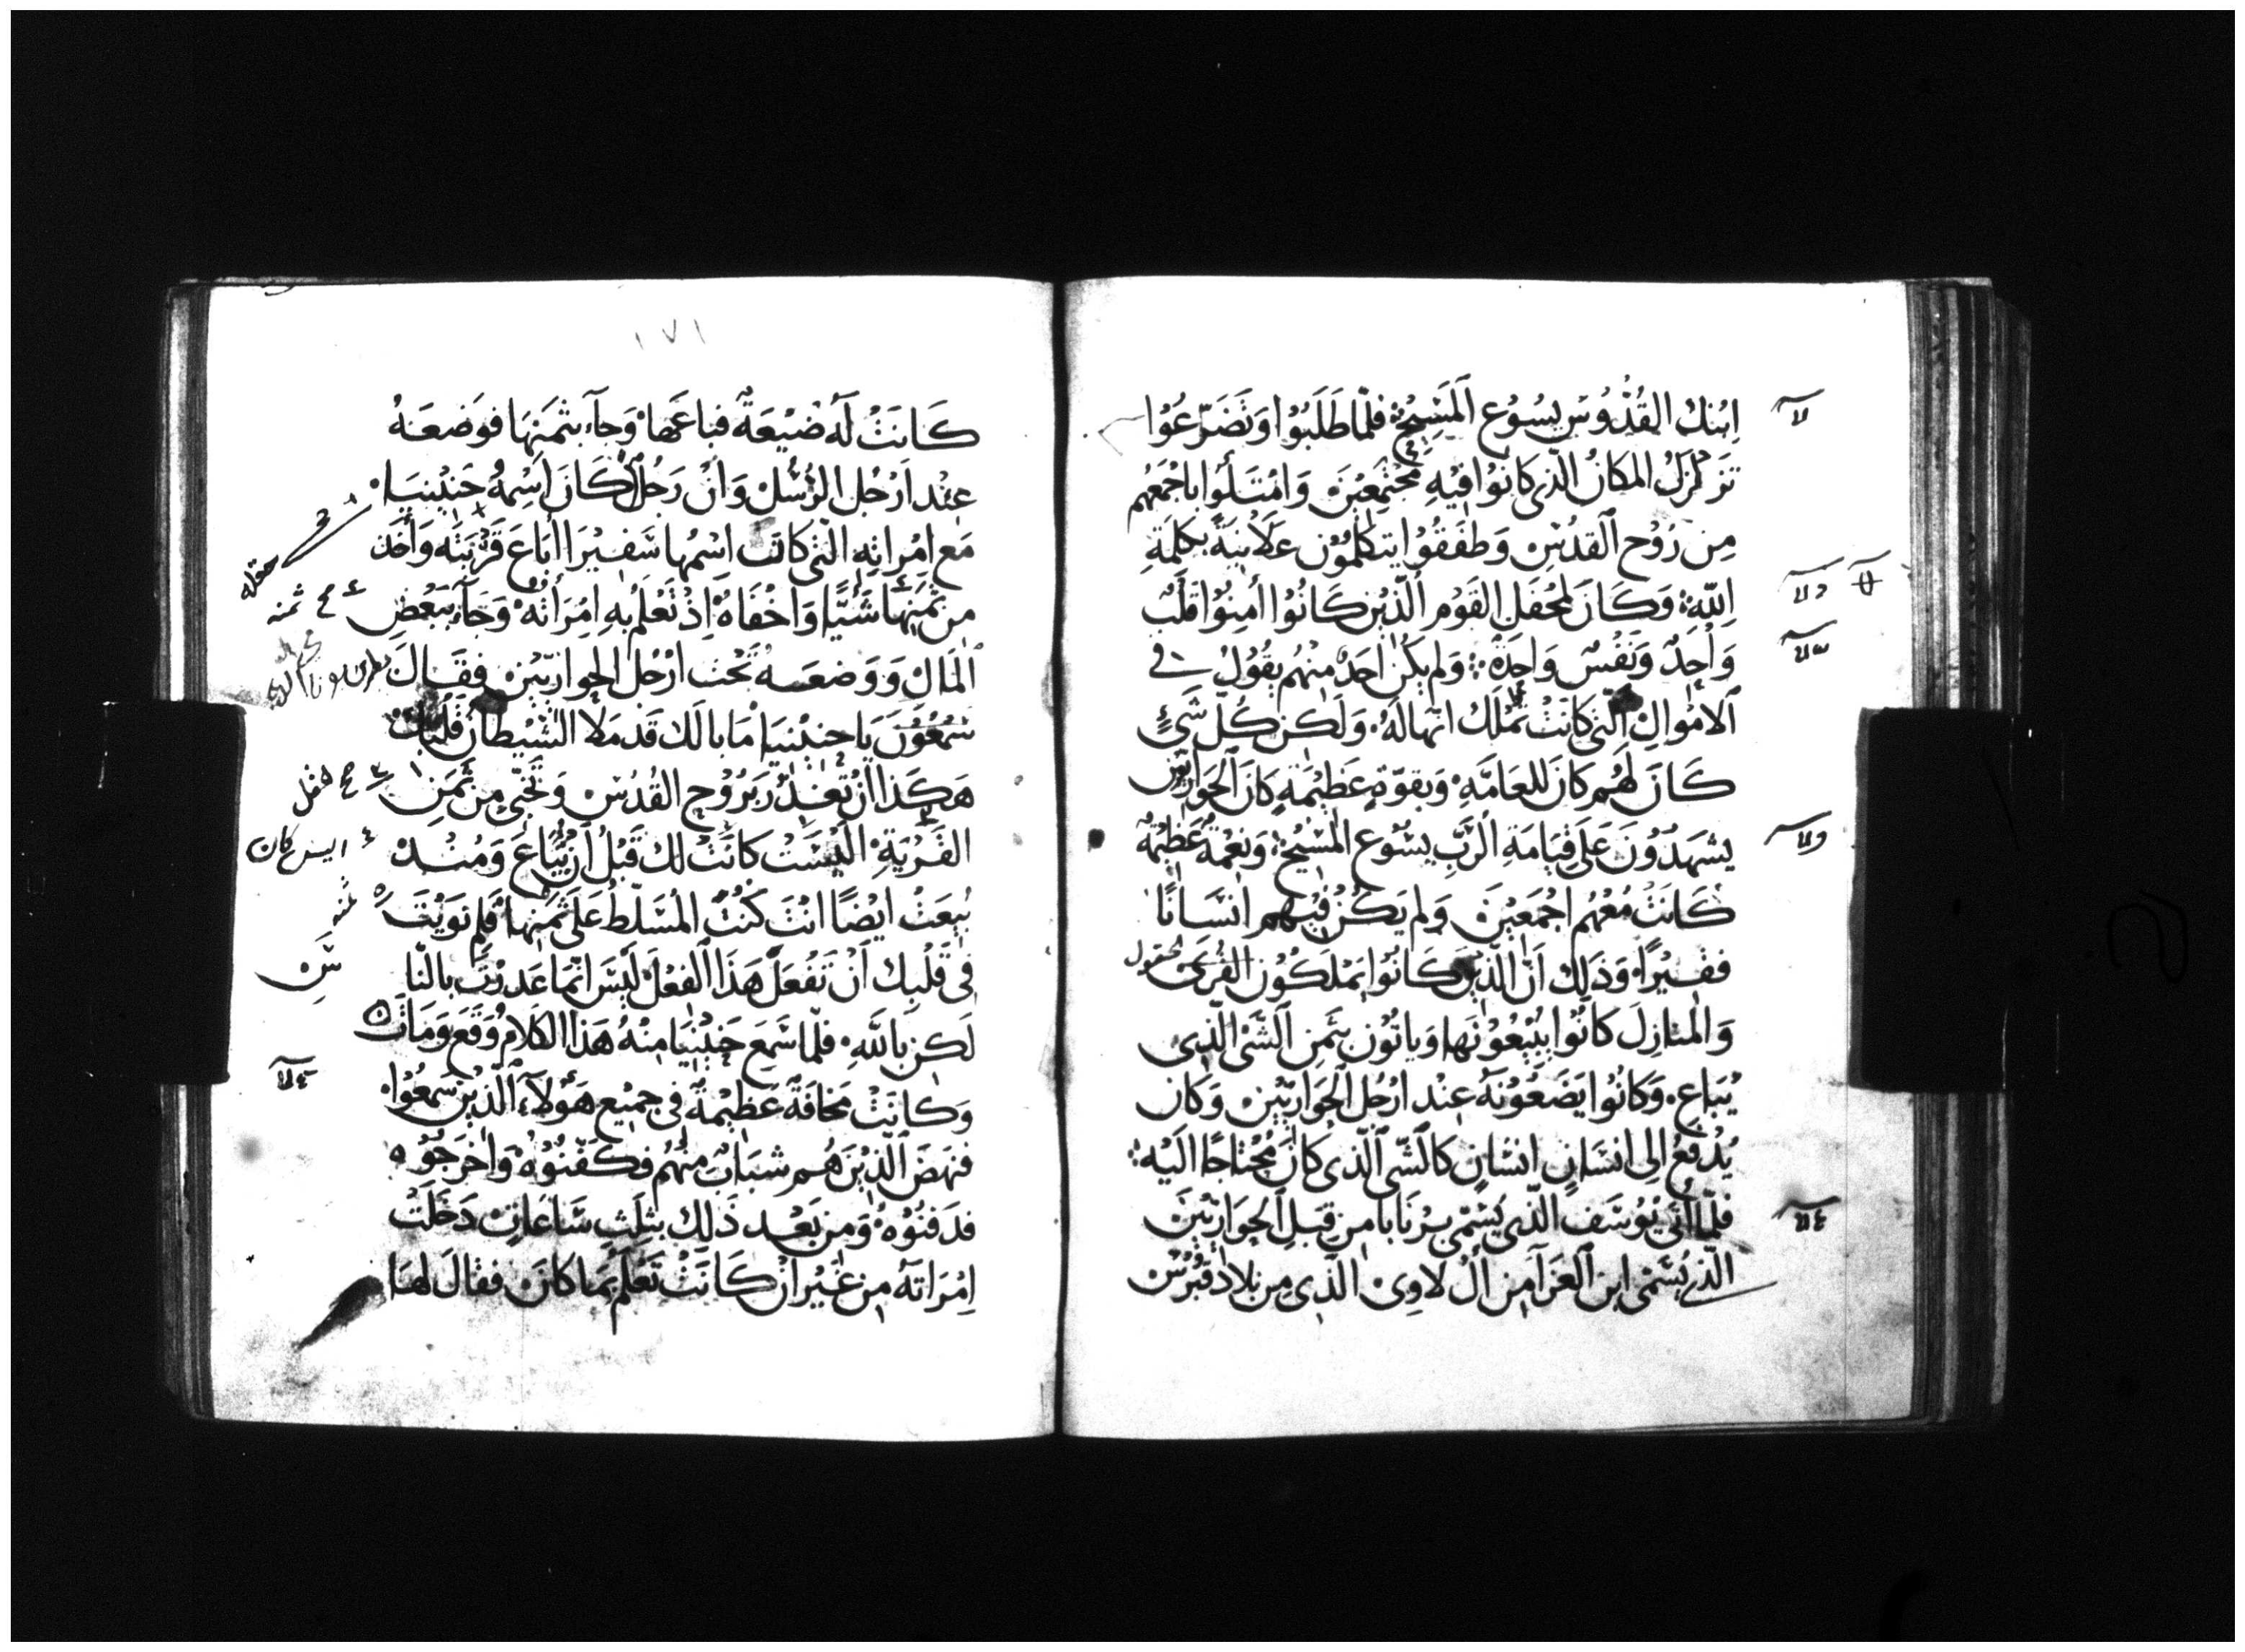 اِبْنِكَ القُدُّوسِ يسُوُع المَسِيْحِ فلمّا طَلَبُوْا وَتَضَرّعُوْا
تَزَلْزَلَ المَكَانُ الّذى كانُوْا فيْهِ مُجْتَمِعِيْنَ وَامْتَلَوُا باجْمَعِهم
مِن رُوْح القُدُسِ وَطَفِقُوْا يتكلّمُوْن عَلَانِيَةً بكلِمَةِ
اللّهِ وَكَانَ لمَحْفَلِ القَوْم الّذِيْن كَانُوْا أمِنُوْا قَلْبٌ
وَاحِدٌ وَنَفْسٌ وَاحِدَةٌ وَلم يكُن احَدٌ مِنْهُم يقُوْلُ فى
الاَمْوَالِ الّتى كانَتْ تُمْلَكُ انّها لَهُ وَلَكِن كُلّ شَىْءٍ
كَانَ لَهُم كَانَ للعَامَّهِ وَبقوّةٍ عَظِيْمَةٍ كَانَ الحَوَاريّين
يشهَدُوْنَ عَلَى قِيَامَةِ الرَّبِّ يسُوْع المَسِيْحِ وَنِعْمَةٌ عَظِيْمَةٌ
كَانَتْ مَعْهُم اجْمَعِيْنَ وَلم يَكُنْ فِيْهِم انْسَانًا
فقِيْرًا وَذَلِكَ انّ الّذِيْنَ كَانُوْا يَمْلَكُوْن القُرَى الحقول
وَالمنازِلَ كَانُوْا يبِيْعُوْنَها وَياتُوْن بثَمَنِ الشّئ الّذِى
يُبَاع وَكَانُوْا يَضَعُوْنَهُ عِنْد ارْجُل الحَوَاريّيْن وَكَان
يُدْفَعُ الى انسَانٍ انسَانٍ كالشّى الّذى كانَ مُحْتاجًا الَيْه
فلمّا اتى يُوْسَف الّذى يُسَمّى بَرْنَابا من قِبَلِ الحوَاريّيْنَ
الّذى يُسَمّى ابن العَزَا مِن أل لَاوِى الّذِى من بلاد قُبْرُس
١٧١
كَانَتْ لَه ضَيْعَةٌ فباعَهَا وَجآء بثَمَنِهَا فوَضعَهُ
عِنْد ارْجُل الرُّسُل وَانّ رَجُلًا كَانَ اسْمُهُ حَنِيْنِيَا
مَع امْراتِهِ الّتى كانَت اسْمُها سَفِيْرَا أبَاع قَرْيَتَه وَأخَذ
من ثمَنِهَا شَيْئًا وَاخْفَاهُ اِذْ تَعْلَمُ بهِ اِمْرَأتهُ وَجَآء ببَعْضِ
المَال وَوَضعَهُ تَحْت ارْجُل الحوَاريّيْن فقَالَ
شمْعُوْن يَا حَنِيْنِيَا مَا بالَك قَد مَلَا الشّيْطَانُ قلْبَك
هَكَذَا انْ تغدُر برُوْح القُدُس وَتُخَبّى مِن ثَمَنِ
القَرْيَةِ اليْسَتْ كانَتْ لك قَبْلُ انْ تُبَاعَ وَمُنْذ
بيْعَتْ ايْضًا انْتَ كُنْتَ المُسَلّط عَلَى ثَمَنِها فَلِم نوَيْتَ
فِى قَلْبِك اَنْ تَفْعَلَ هَذَا الفِعْلَ لَيْسَ انّمَا غَدرْتَ بالنّا
لَكِن باللّهِ فلمّا سَمِعَ حَنِيْنِيَا مِنْهُ هَذَا الكَلام وَقَع وَمَات
وَكانَتْ مَخافَةٌ عَظيْمَةٌ فى جمِيْع هَؤُلآء الّذِيْن سَمعُوْا
فنهَضَ الّذِيْنَ هُم شبَابٌ منْهُم فكَفّنُوْهُ وَاخرَجُوْه
فدَفنُوْهُ وَمِن بَعْد ذَلِك بثلِث سَاعَاتٍ دَخَلَتْ
اِمْرَاتهُ مِن غَيْر انْ كَانَتْ تَعْلَمُ بمَا كَانَ فقالَ لهَا
حقله
ثمنه
حقل
اليس كان
س